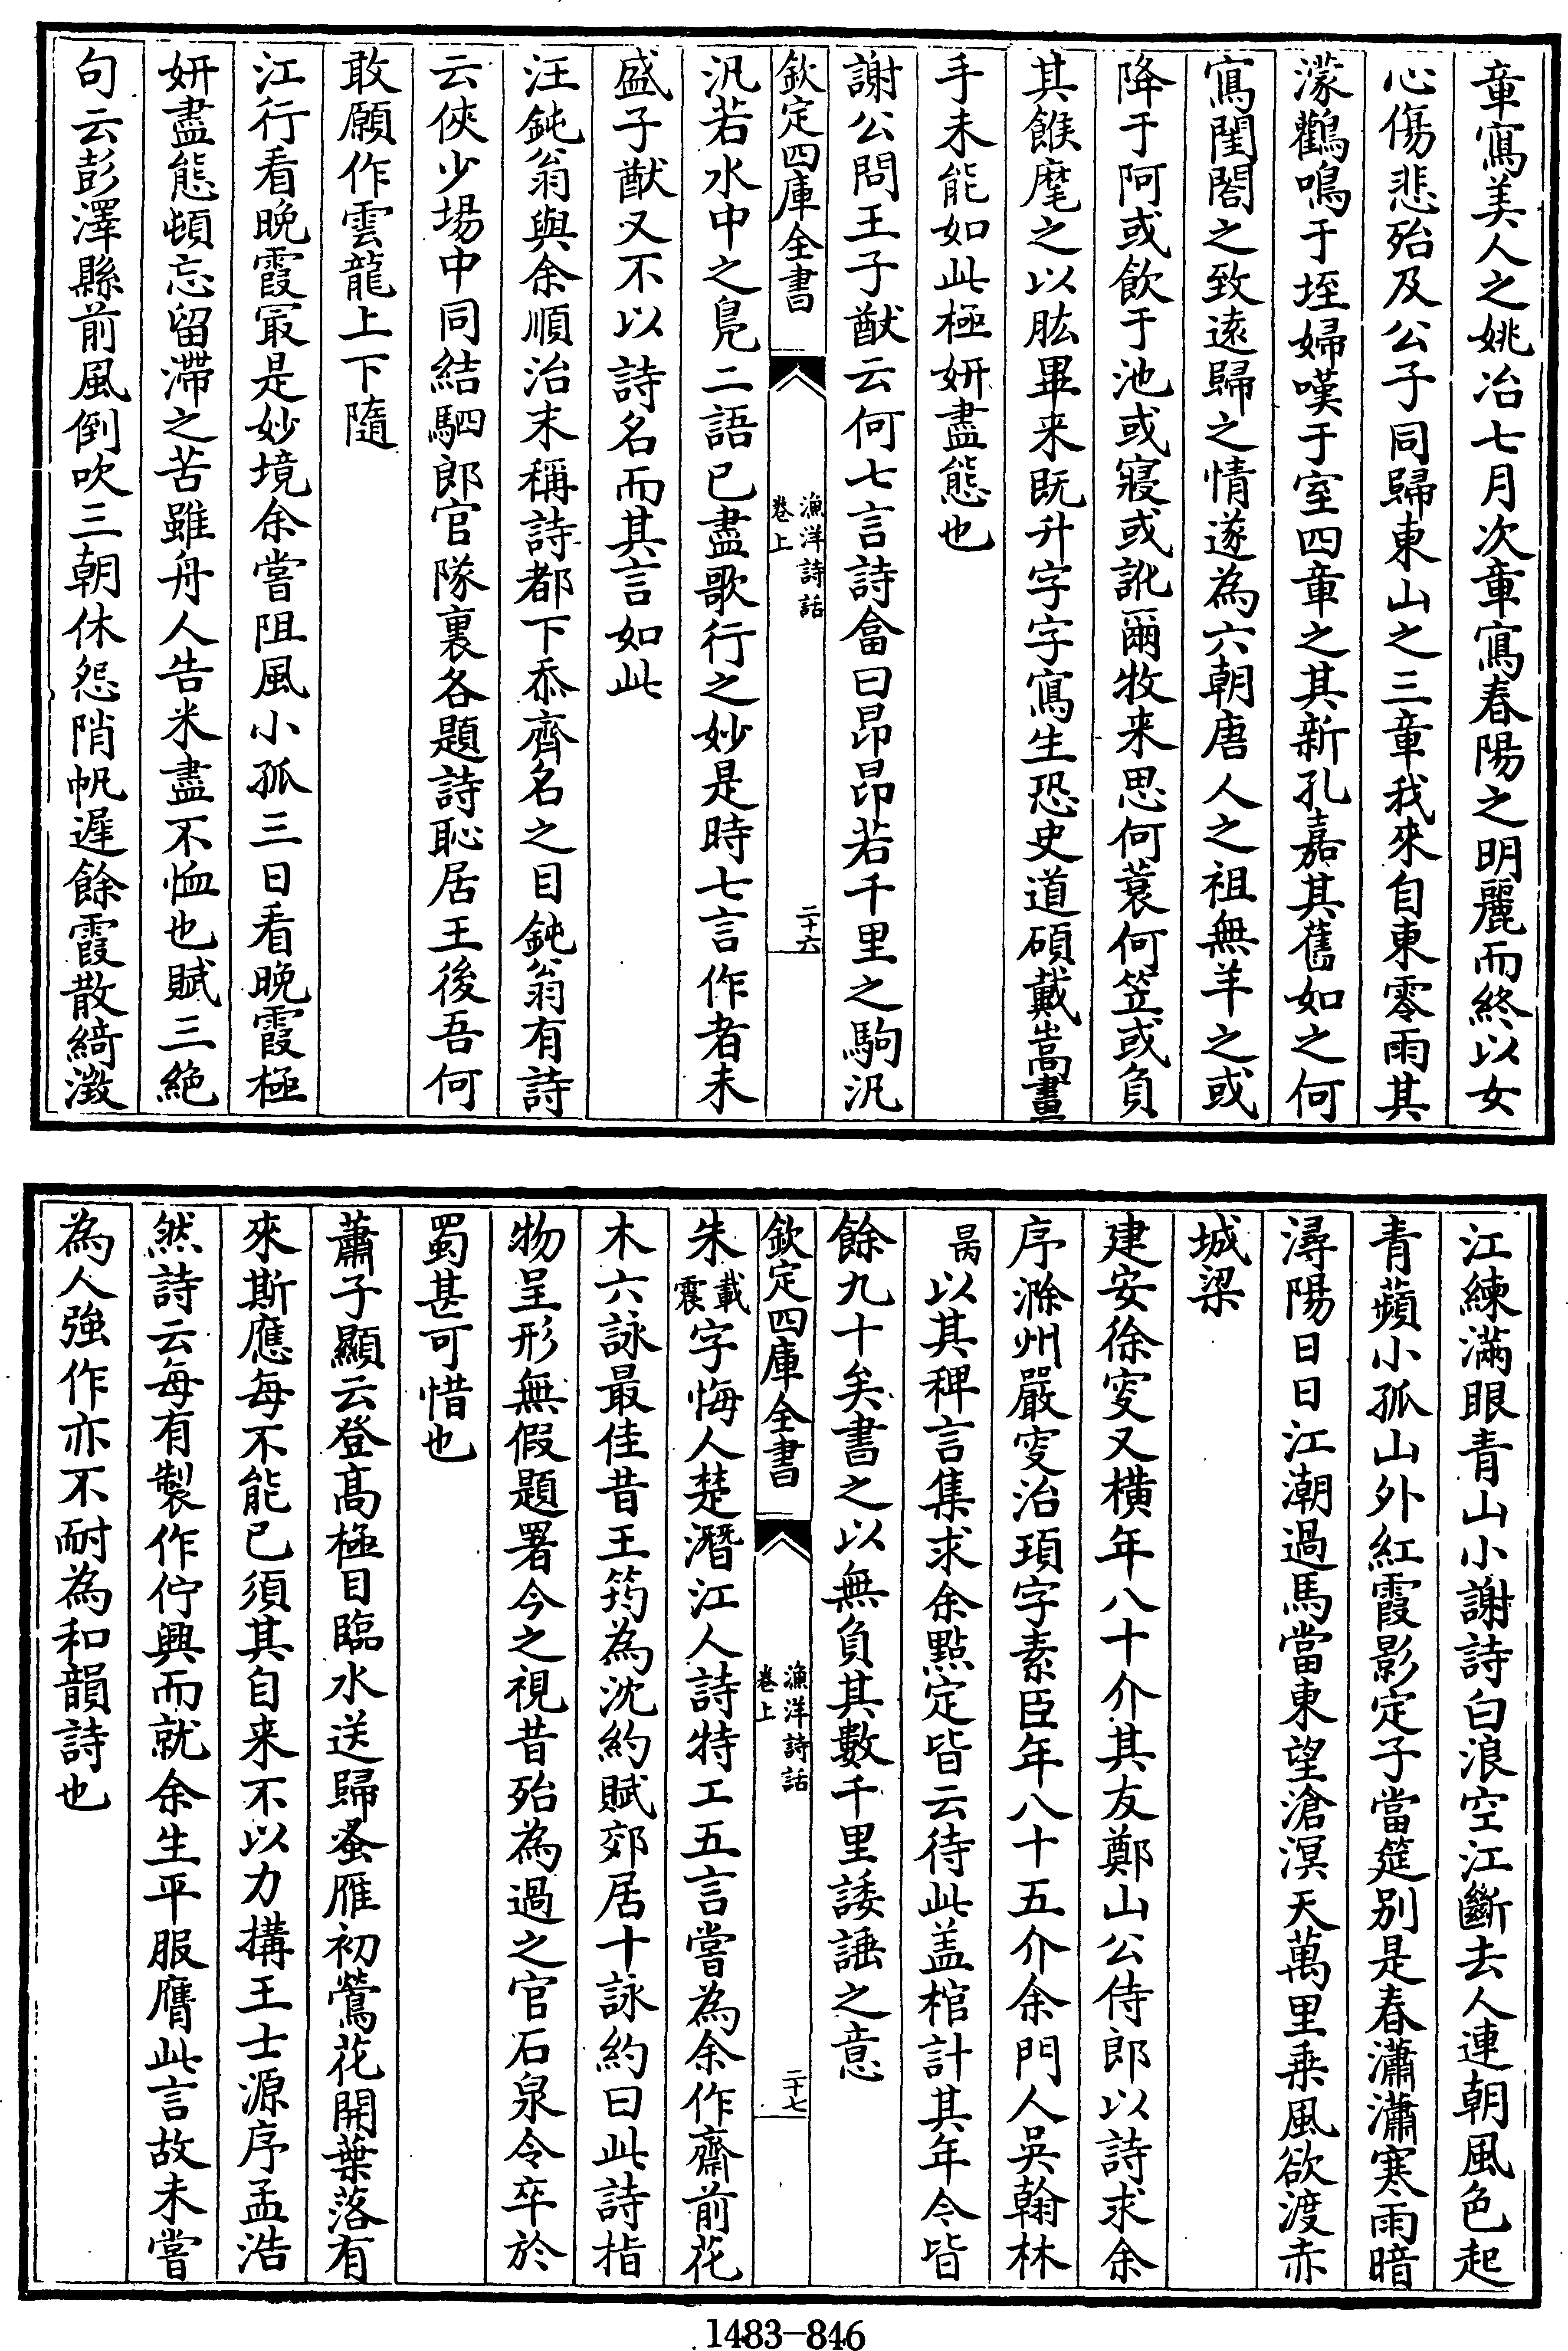 章寫美人之姚冶七月次章寫春陽之明麗而終以女
心傷悲殆及公子同歸東山之三章我來自東零雨其
濛鸛鳴于垤婦嘆于室四章之其新孔嘉其舊如之何
寫閨閤之致逺歸之情遂為六朝唐人之祖無羊之或
降于阿或飲于池或寢或訛爾牧来思何蓑何笠或負
其餱麾之以肱畢来既升字字寫生恐史道碩戴嵩畫
手未能如此極妍盡態也
謝公問王子猷云何七言詩畣曰昂昂若千里之駒汎
欽定四庫全書
漁洋詩話
卷上
二十六
汎若水中之鳬二語已盡歌行之妙是時七言作者未
盛子猷又不以詩名而其言如此
汪鈍翁與余順治末稱詩都下忝齊名之目鈍翁有詩
云俠少場中同結駟郎官隊裏各題詩恥居王後吾何
敢願作雲龍上下隨
江行看晚霞冣是妙境余嘗阻風小孤三日看晚霞極
妍盡態頓忘留滯之苦雖舟人告米盡不恤也賦三絶
句云彭澤縣前風倒吹三朝休怨陗帆遲餘霞散綺澂
江練滿眼青山小謝詩白浪空江斷去人連朝風色起
青蘋小孤山外紅霞影定子當筵别是春瀟瀟寒雨暗
潯陽日日江潮過馬當東望滄溟天萬里乗風欲渡赤
城梁
建安徐䆫又橫年八十介其友鄭山公侍郎以詩求余
序滁州嚴䆫治頊字素臣年八十五介余門人吳翰林
昺以其稗言集求余點定皆云待此盖棺計其年令皆
餘九十矣書之以無負其數千里諉諈之意
欽定四庫全書
漁洋詩話
卷上
二十七
朱載震字悔人楚潛江人詩特工五言嘗為余作齋前花
木六詠最佳昔王筠為沈約賦郊居十詠約曰此詩指
物呈形無假題署今之視昔殆為過之官石泉令卒於
蜀甚可惜也
蕭子顯云登髙極目臨水送歸蚤雁初鶯花開葉落有
來斯應每不能已須其自来不以力搆王士源序孟浩
然詩云每有製作佇興而就余生平服膺此言故未嘗
為人強作亦不耐為和韻詩也
1483-846